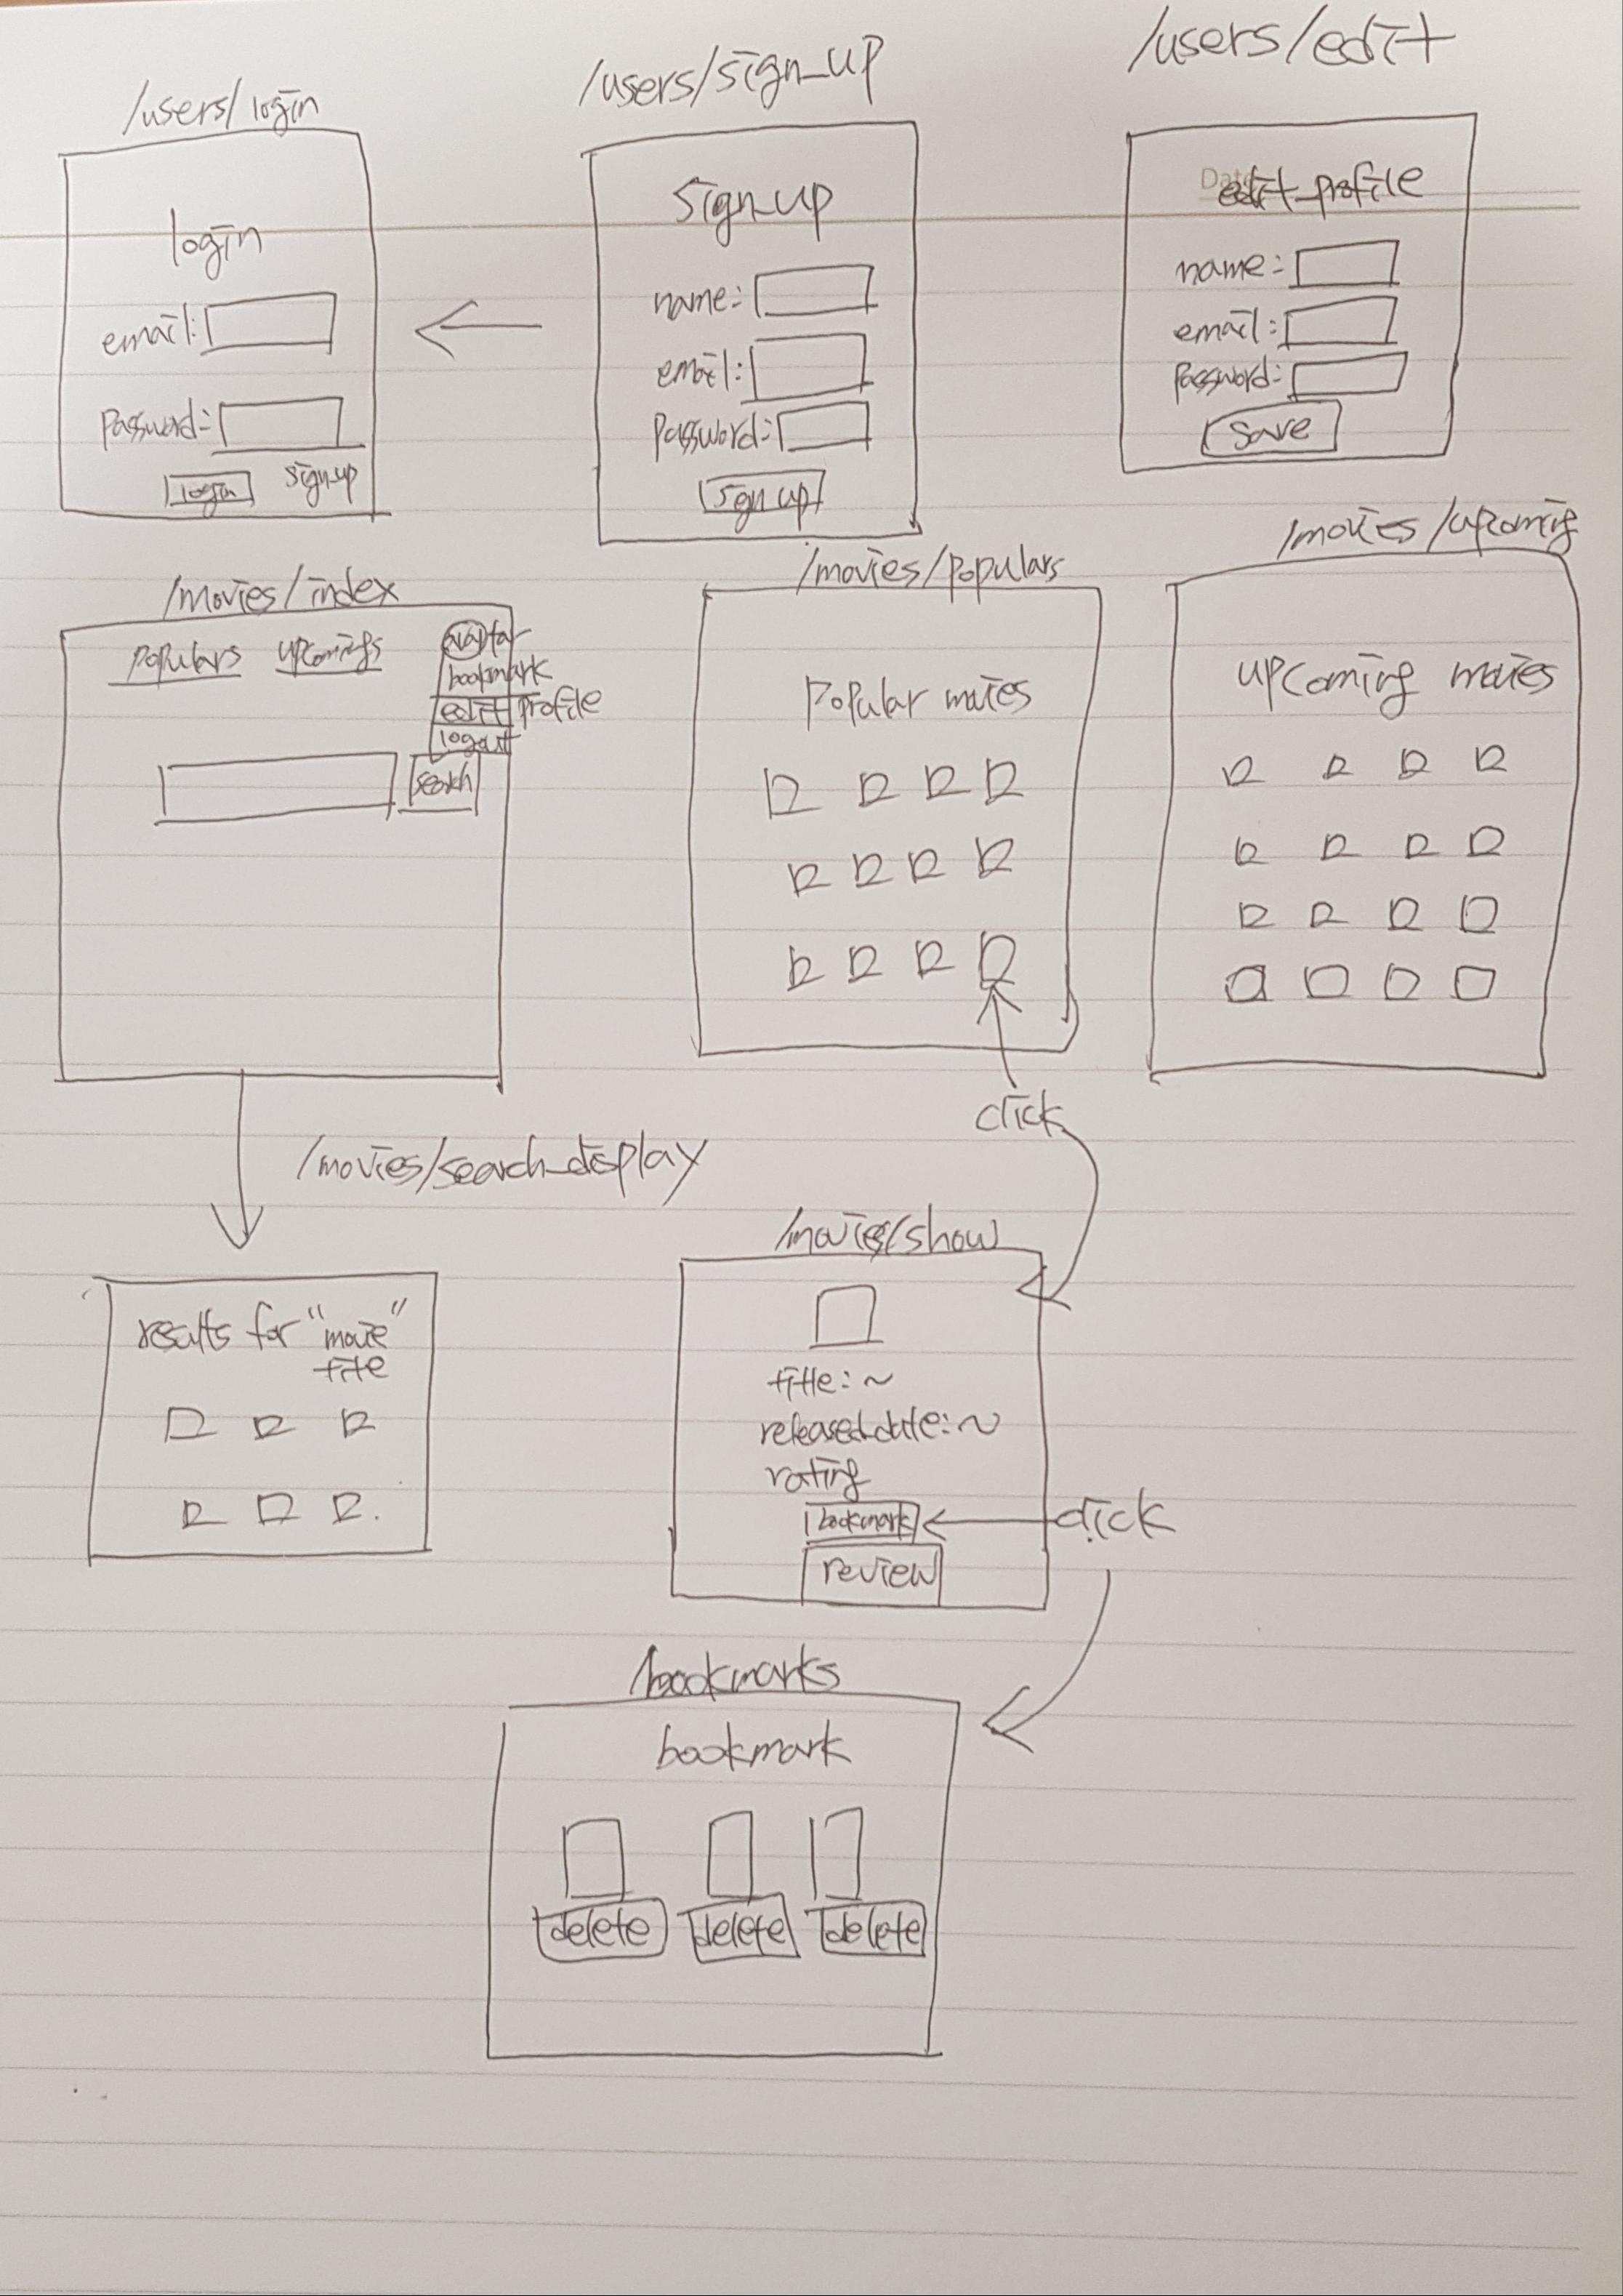 /users/login
login
email:
Password:
login sign_up
/users/sign_up
Sign_up
name:
email:
Password:
Sign up
/users/edit
Date
edit_profile
name:
email:
Password:
Save
/movies/index
Populars upcomings avatar
bookmark
edit profile
logout
search
/movies/populars
Popular movies
click
/movies/upcoming
upcoming movies
/movies/search_display
results for "movie"
title
/movies/show
title: ~
released_date: ~
rating
bookmark click
review
/bookmarks
bookmark
delete delete delete